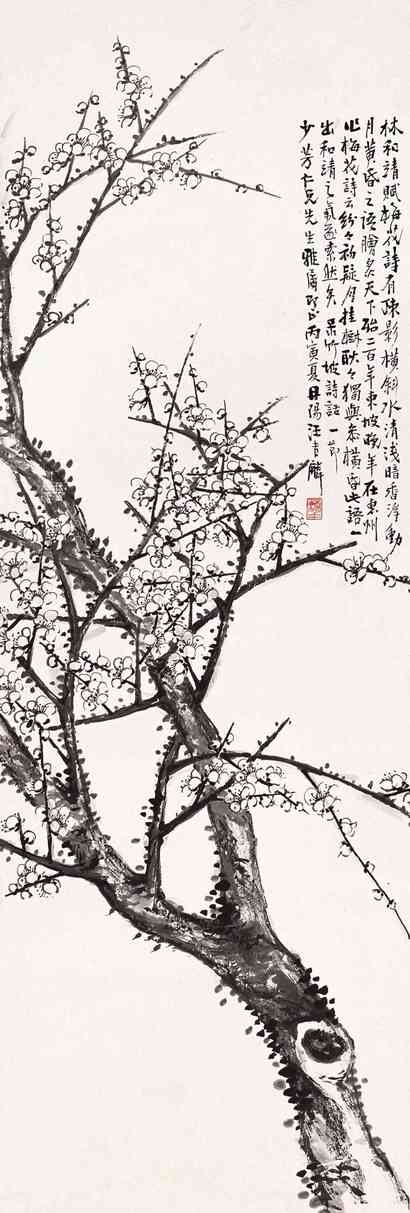 林和靖賦梅花詩有疎影橫斜水清淺暗香浮動
月黃昏之語膾炙天下殆二百年東坡晚年在惠州
作梅花詩云紛紛初疑月挂樹耿耿獨與參橫昏此語一
出和靖之氣遂索然矣 录竹坡詩話一節
少芳仁兄先生雅屬即正丙寅夏日陽汪吉麟